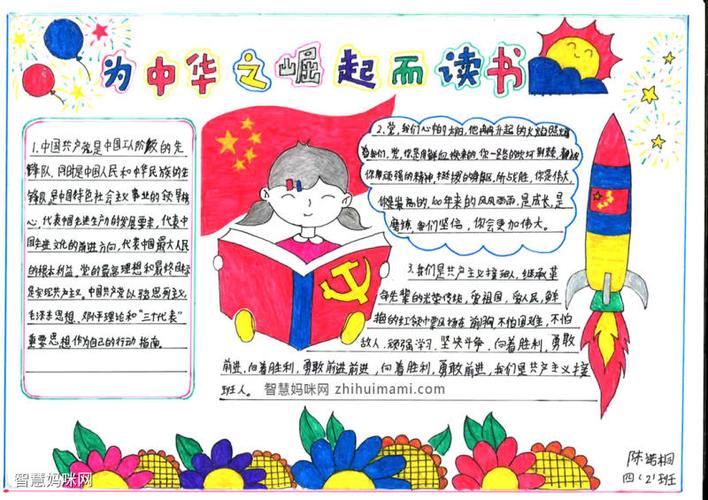 为中华之崛起而读书
1.中国共产党是中国工人阶级的先
锋队,同时是中国人民和中华民族的先
锋队,是中国特色社会主义事业的领导核
心,代表中国先进生产力的发展要求,代表中
国先进文化的前进方向,代表中国最大人民
的根本利益。党的最高理想和最终目标
是实现共产主义。中国共产党以马克思列宁主义、
毛泽东思想、邓小平理论和“三个代表”
重要思想作为自己的行动指南。
2.党,我们心中的太阳,他像冉冉升起的火焰照耀
着我们。党,你是用鲜血换来的,你一路的坎坷
你用顽强的精神,
百年来的风风雨雨,是成长,是
磨练,我们坚信,你会更加伟大。
3.我们是共产主义接班人,继承革
命先辈的光荣传统,爱祖国,爱人民,鲜
艳的红领巾飘扬在前胸,不怕困难,不怕
敌人,顽强学习,坚决斗争,向着胜利,勇敢
前进,向着胜利,勇敢前进前进,向着胜利,勇敢前进,我们是共产主义接
班人。
智慧妈咪网 zhihuimami.com
陈诺桐
四(2)班
智慧妈咪网